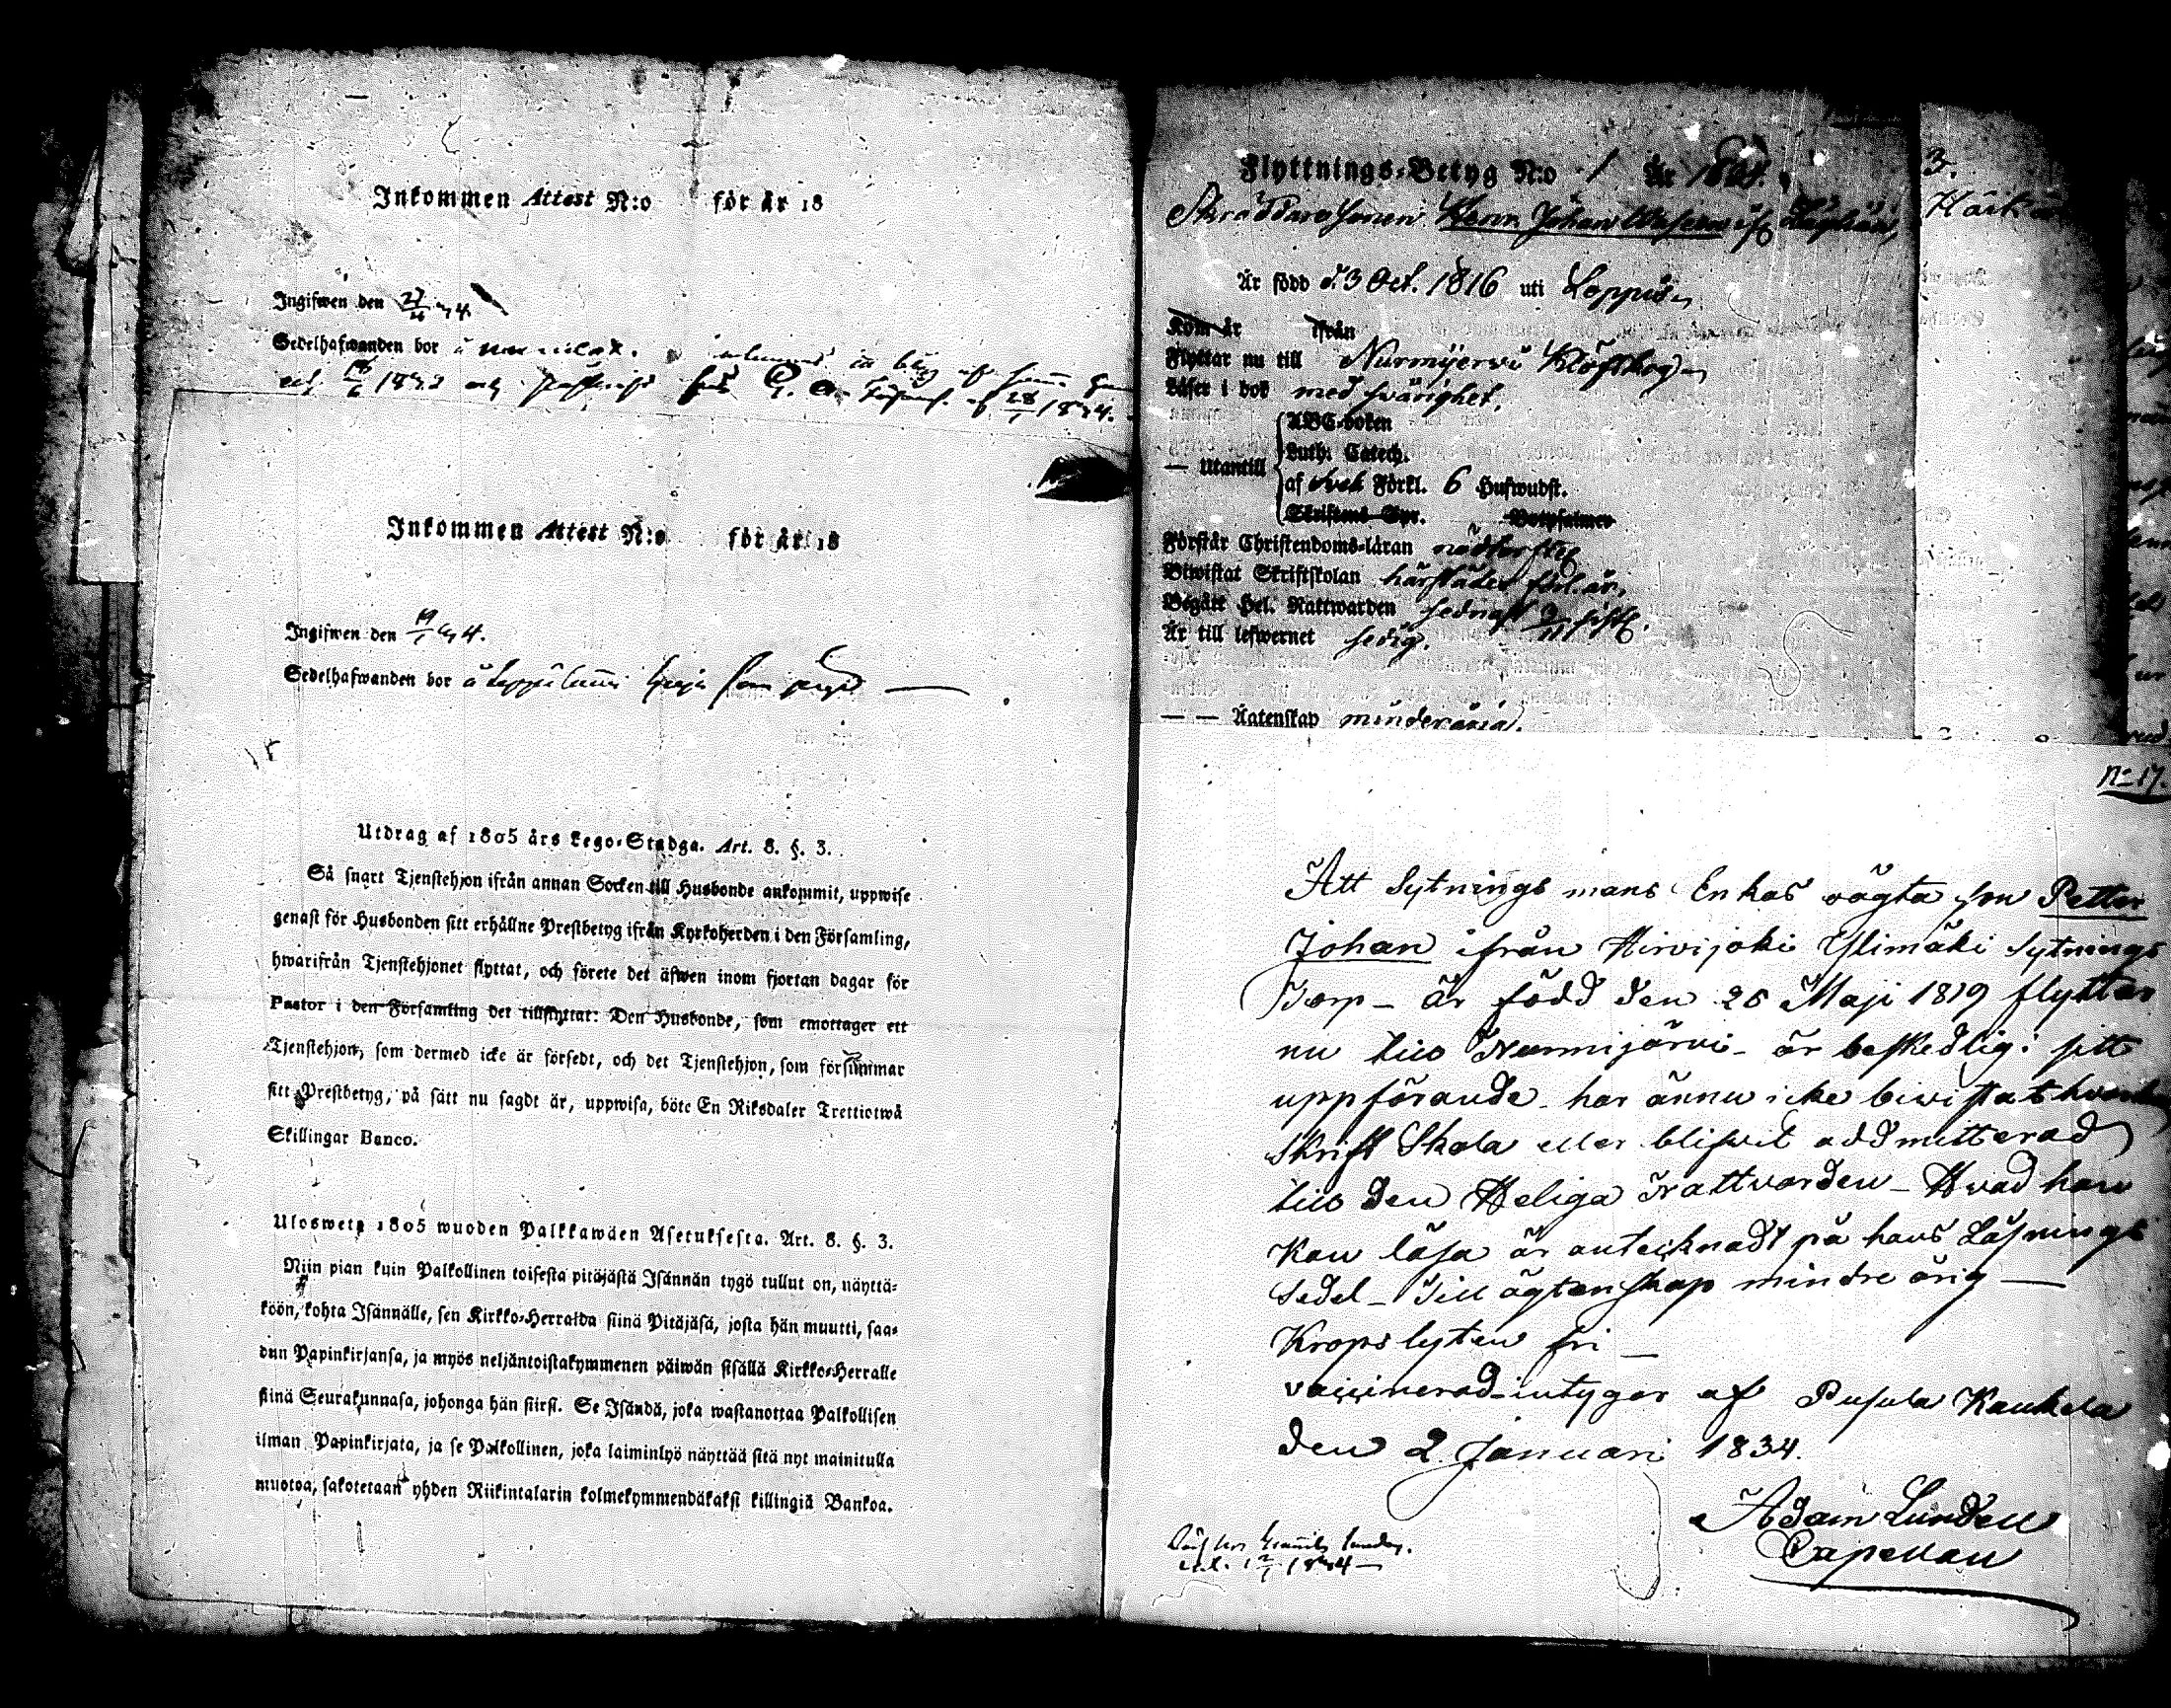 Inkommen Attest N:o för år 18
Ingifwen den 27
Sedelhafwanden bor å
Inkommen Attest N:o för år 18
Ingifwen den 19
Sedelhafwanden bor å
Utdrag af 1805 års Lego-Stadga. Art. 8. §. 3.
Så snart Tjenstehjon ifrån annan Socken till Husbonde ankommit, uppwise
genast för Husbonden sitt erhållne Prestbetyg ifrån Kyrkoherden i den Församling,
hwarifrån Tjenstehjonet flyttat, och förete det äfwen inom fjortan dagar för
Pastor i den Församling det tillflyttat: Den Husbonde, som emottager ett
Tjenstehjon, som dermed icke är försedt, och det Tjenstehjon, som försummar
sitt Prestbetyg, på sätt nu sagdt är, uppwisa, böte En Riksdaler Trettiotwå
Skillingar Banco.
Uloswetä 1805 wuoden Palkkawäen Asetuksesta. Art. 8. §. 3.
Niin pian kuin Palkollinen toisesta pitäjästä Isännän tygö tullut on, näyttä-
köön, kohta Isännälle, sen Kirkko-Herralda siinä Pitäjäsä, josta hän muutti, saa-
dun Papinkirjansa, ja myös neljäntoistakymmenen päiwän sisällä Kirkko-Herralle
siinä Seurakunnasa, johonga hän siirsi. Se Isändä, joka wastanottaa Palkollisen
ilman Papinkirjata, ja se Palkollinen, joka laiminlyö näyttää sitä nyt mainitulla
muotoa, sakotetaan yhden Riikintalarin kolmekymmendäkaksi killingiä Bankoa.
Flyttnings-Betyg N:o 1 År
Skräddare sonen Johan
Är född d. 3 Oct. 1816 uti Loppis
Kom år ifrån
Flyttar nu till Nurmijervi Klöfskog
Läser i bok med svårighet.
ABC-boken
Luth. Catech.
— Utantill
af Sveb. Förkl. 6 Hufwudst.
Skriftens Spr. Botpsalmer
Förstår Christendoms-läran nödtorftig
Biwistat Skriftskolan härstädes
Begått Hel. Nattwarden sednast
Är till lefwernet sedig.
— — Äktenskap minderårig.
3.
No 17.
Att Sytnings mans Enkas oägta son Petter
Johan ifrån Hirvijoki Ylimäki Sytnings
Torp – är född den 25 Maji 1819 flyttar
nu till Nurmijärvi – är beskedlig i sitt
uppförande – har ännu icke bivistat hvarken
Skrift Skola eller blifvit addmitterad
till den Heliga Nattvarden – Hvad han
Kan läsa är antecknadt på hans Läsnings
Sedel – Till ägtenskap mindre årig —
Krops lyten fri —
vaccinerad – intygar af Pusula Kaukela
den 2 Januari 1834.
Adam Lundell
Capellan